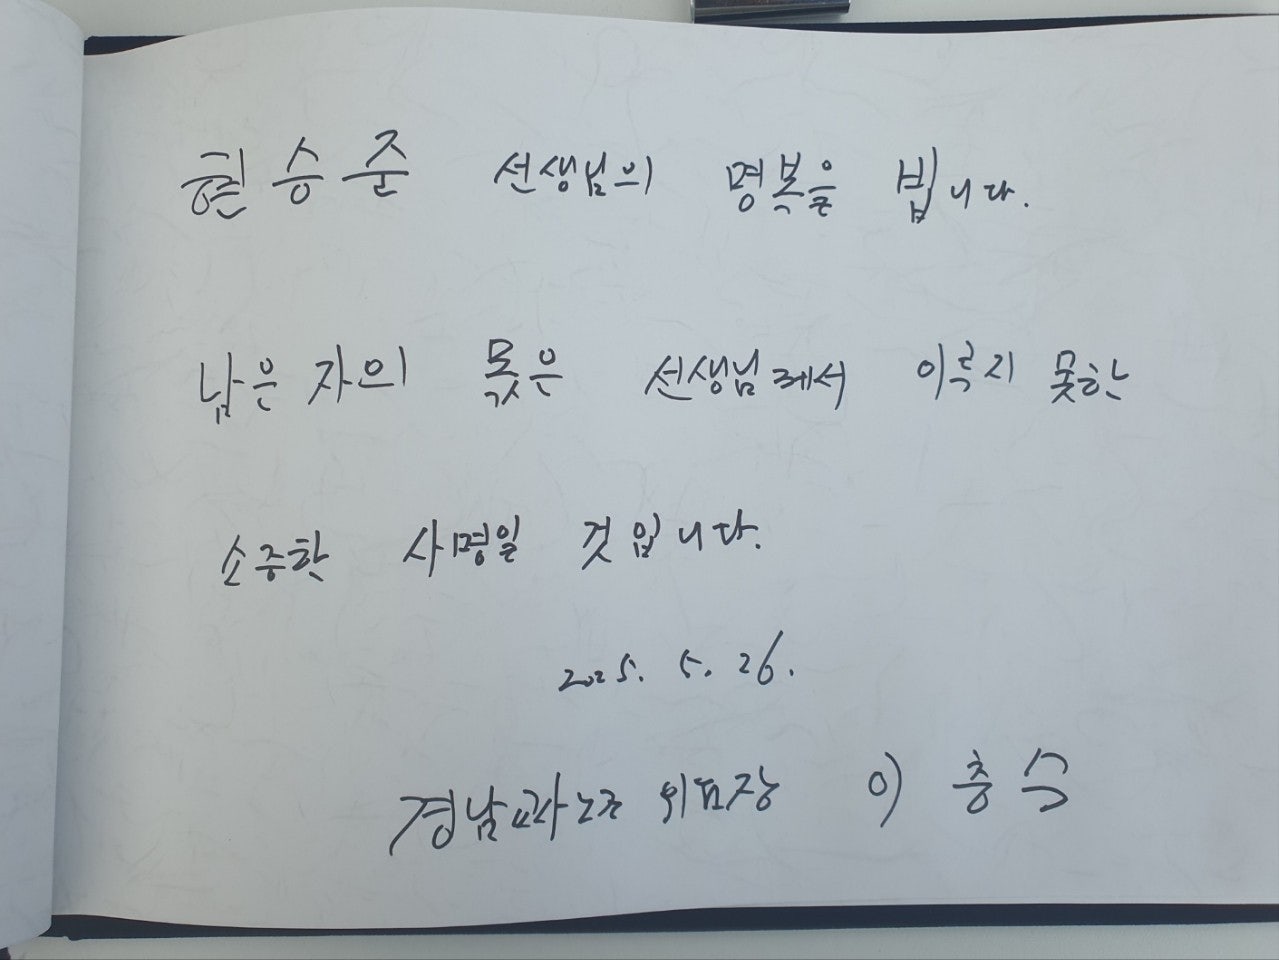 현승준 선생님의 명복을 빕니다.
남은 자의 몫은 선생님께서 이루지 못한
소중한 사명일 것입니다.
2025. 5. 26.
경남교사노조 위원장 이충수